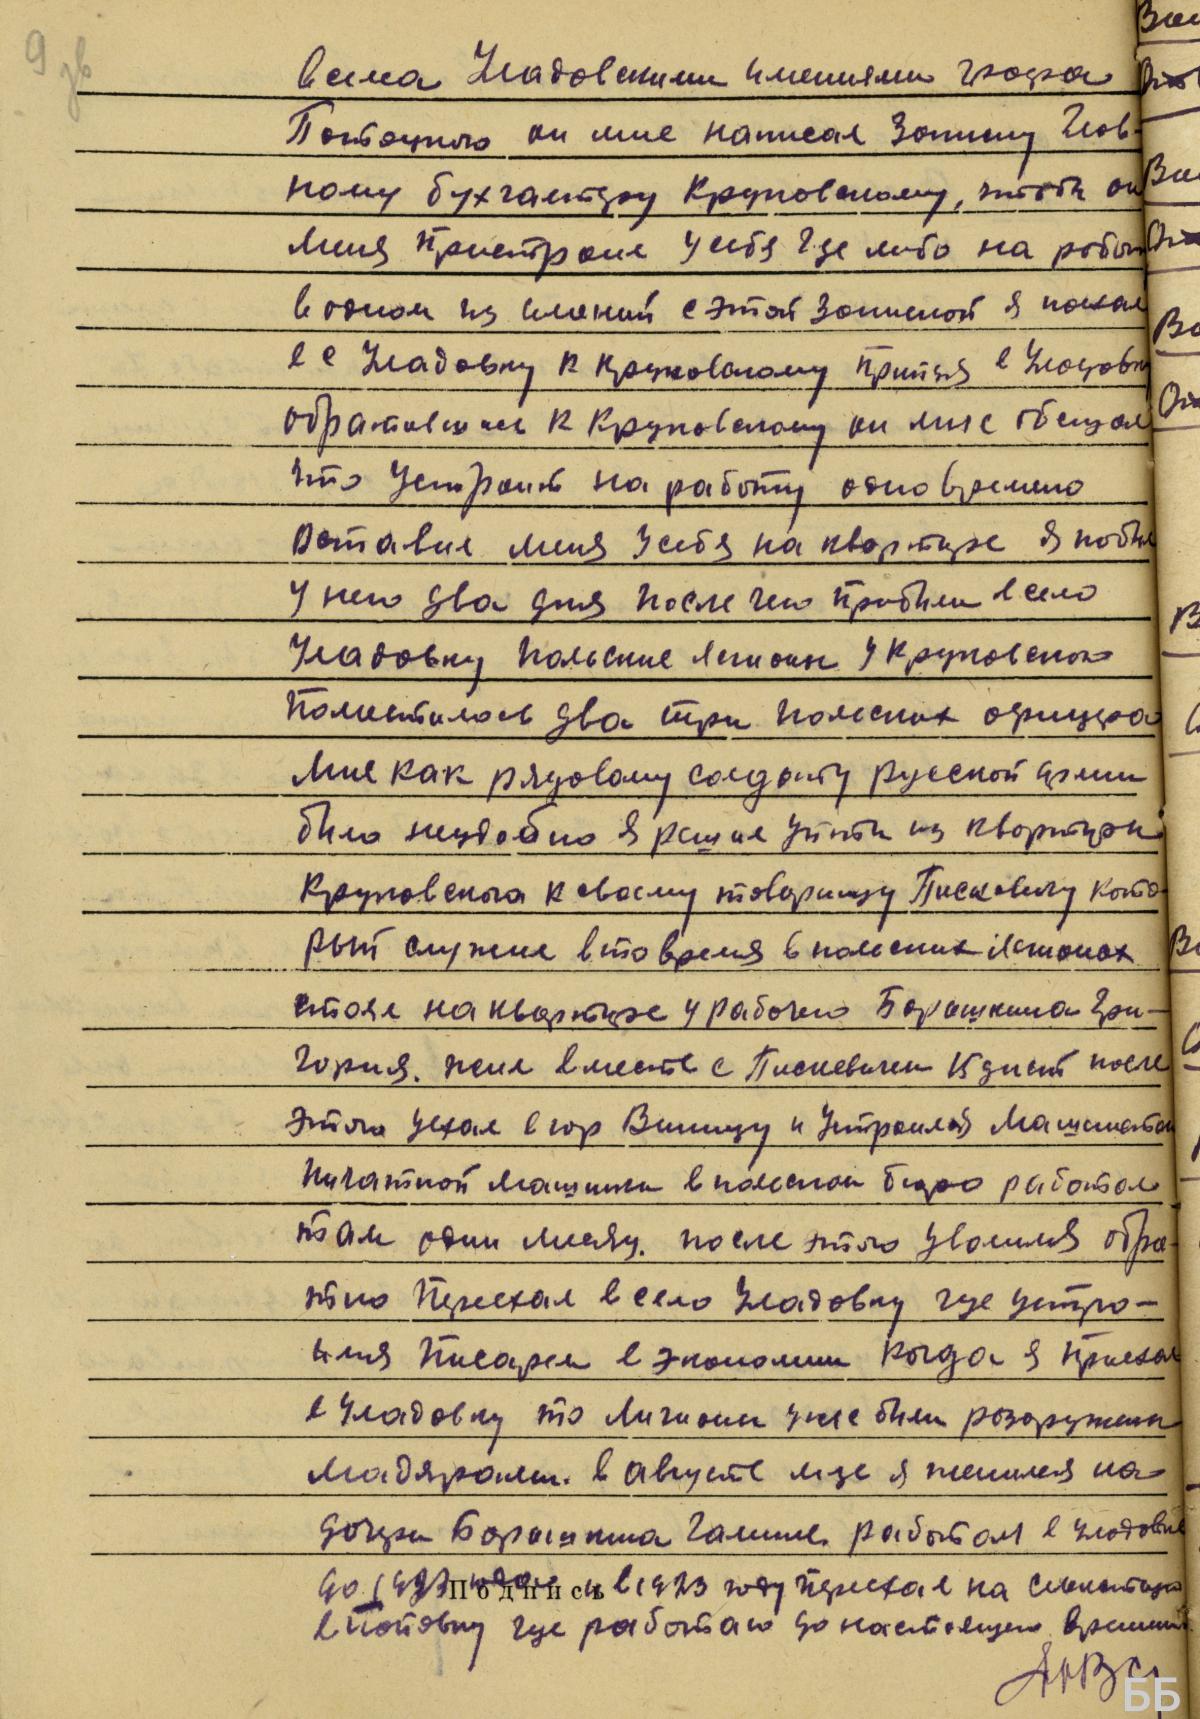 9 зв
всема Уладовскими имениями графа
Потоцкого он мне написал записку Глав-
ному бухгалтеру Круповскому, чтоби он
меня пристроил у себя где либо на работ
в одном из имений с этой запиской я поехал
в с Уладовку к Круповскому приехав в Уладовку
обратившись к Круповскому он мне обещал
что устроит на работу одновремено
оставил меня у себя на квартире я побыл
у него два дня после чего прибыли в село
Уладовку польские легионы у Круповского
поместилось два три польских офицера
мне как рядовому солдату русской армии
было неудобно я решил уйти из квартиры
Крупновского к своему товарищу Пискевичу кото-
рый служил в то время в польских легионах
стоял на квартире у рабочего Барашкина Гри-
гория. жил вместе с Пискевичем 15 дней после
этого уехал в гор Виницу и устроился
пичатной машинки в польском бюро работал
там один месяц. после этого уволился обра-
тно переехал в село Уладовку где устро-
ился писарем в экономии когда я приехал
в Уладовку то лигионы уже были розоружены
мадярами. в августе м-це я женился на
дочери Барашкина Галине. работал в Уладовке
до 1923 года и в 1923 году переехал на
Подпись
в Поповку где работаю до настоящего времени
ББ